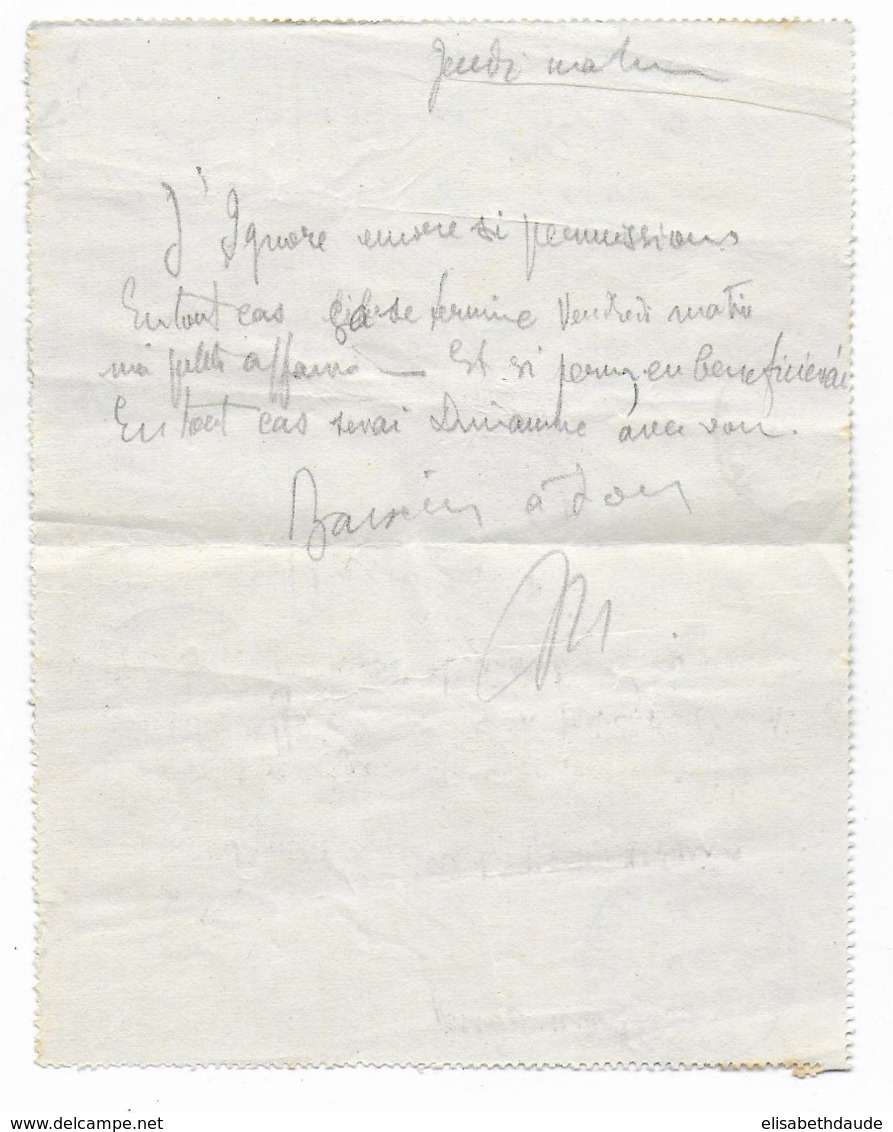 Jeudi matin
J'Ignore encore si permissions
En tout cas se termine Vendredi matin
ma petite affaire Et si perm, en beneficierai
En tout cas serai Dimanche avec vous.
Baisers à tous
M
delcampe.net
elisabethdaude